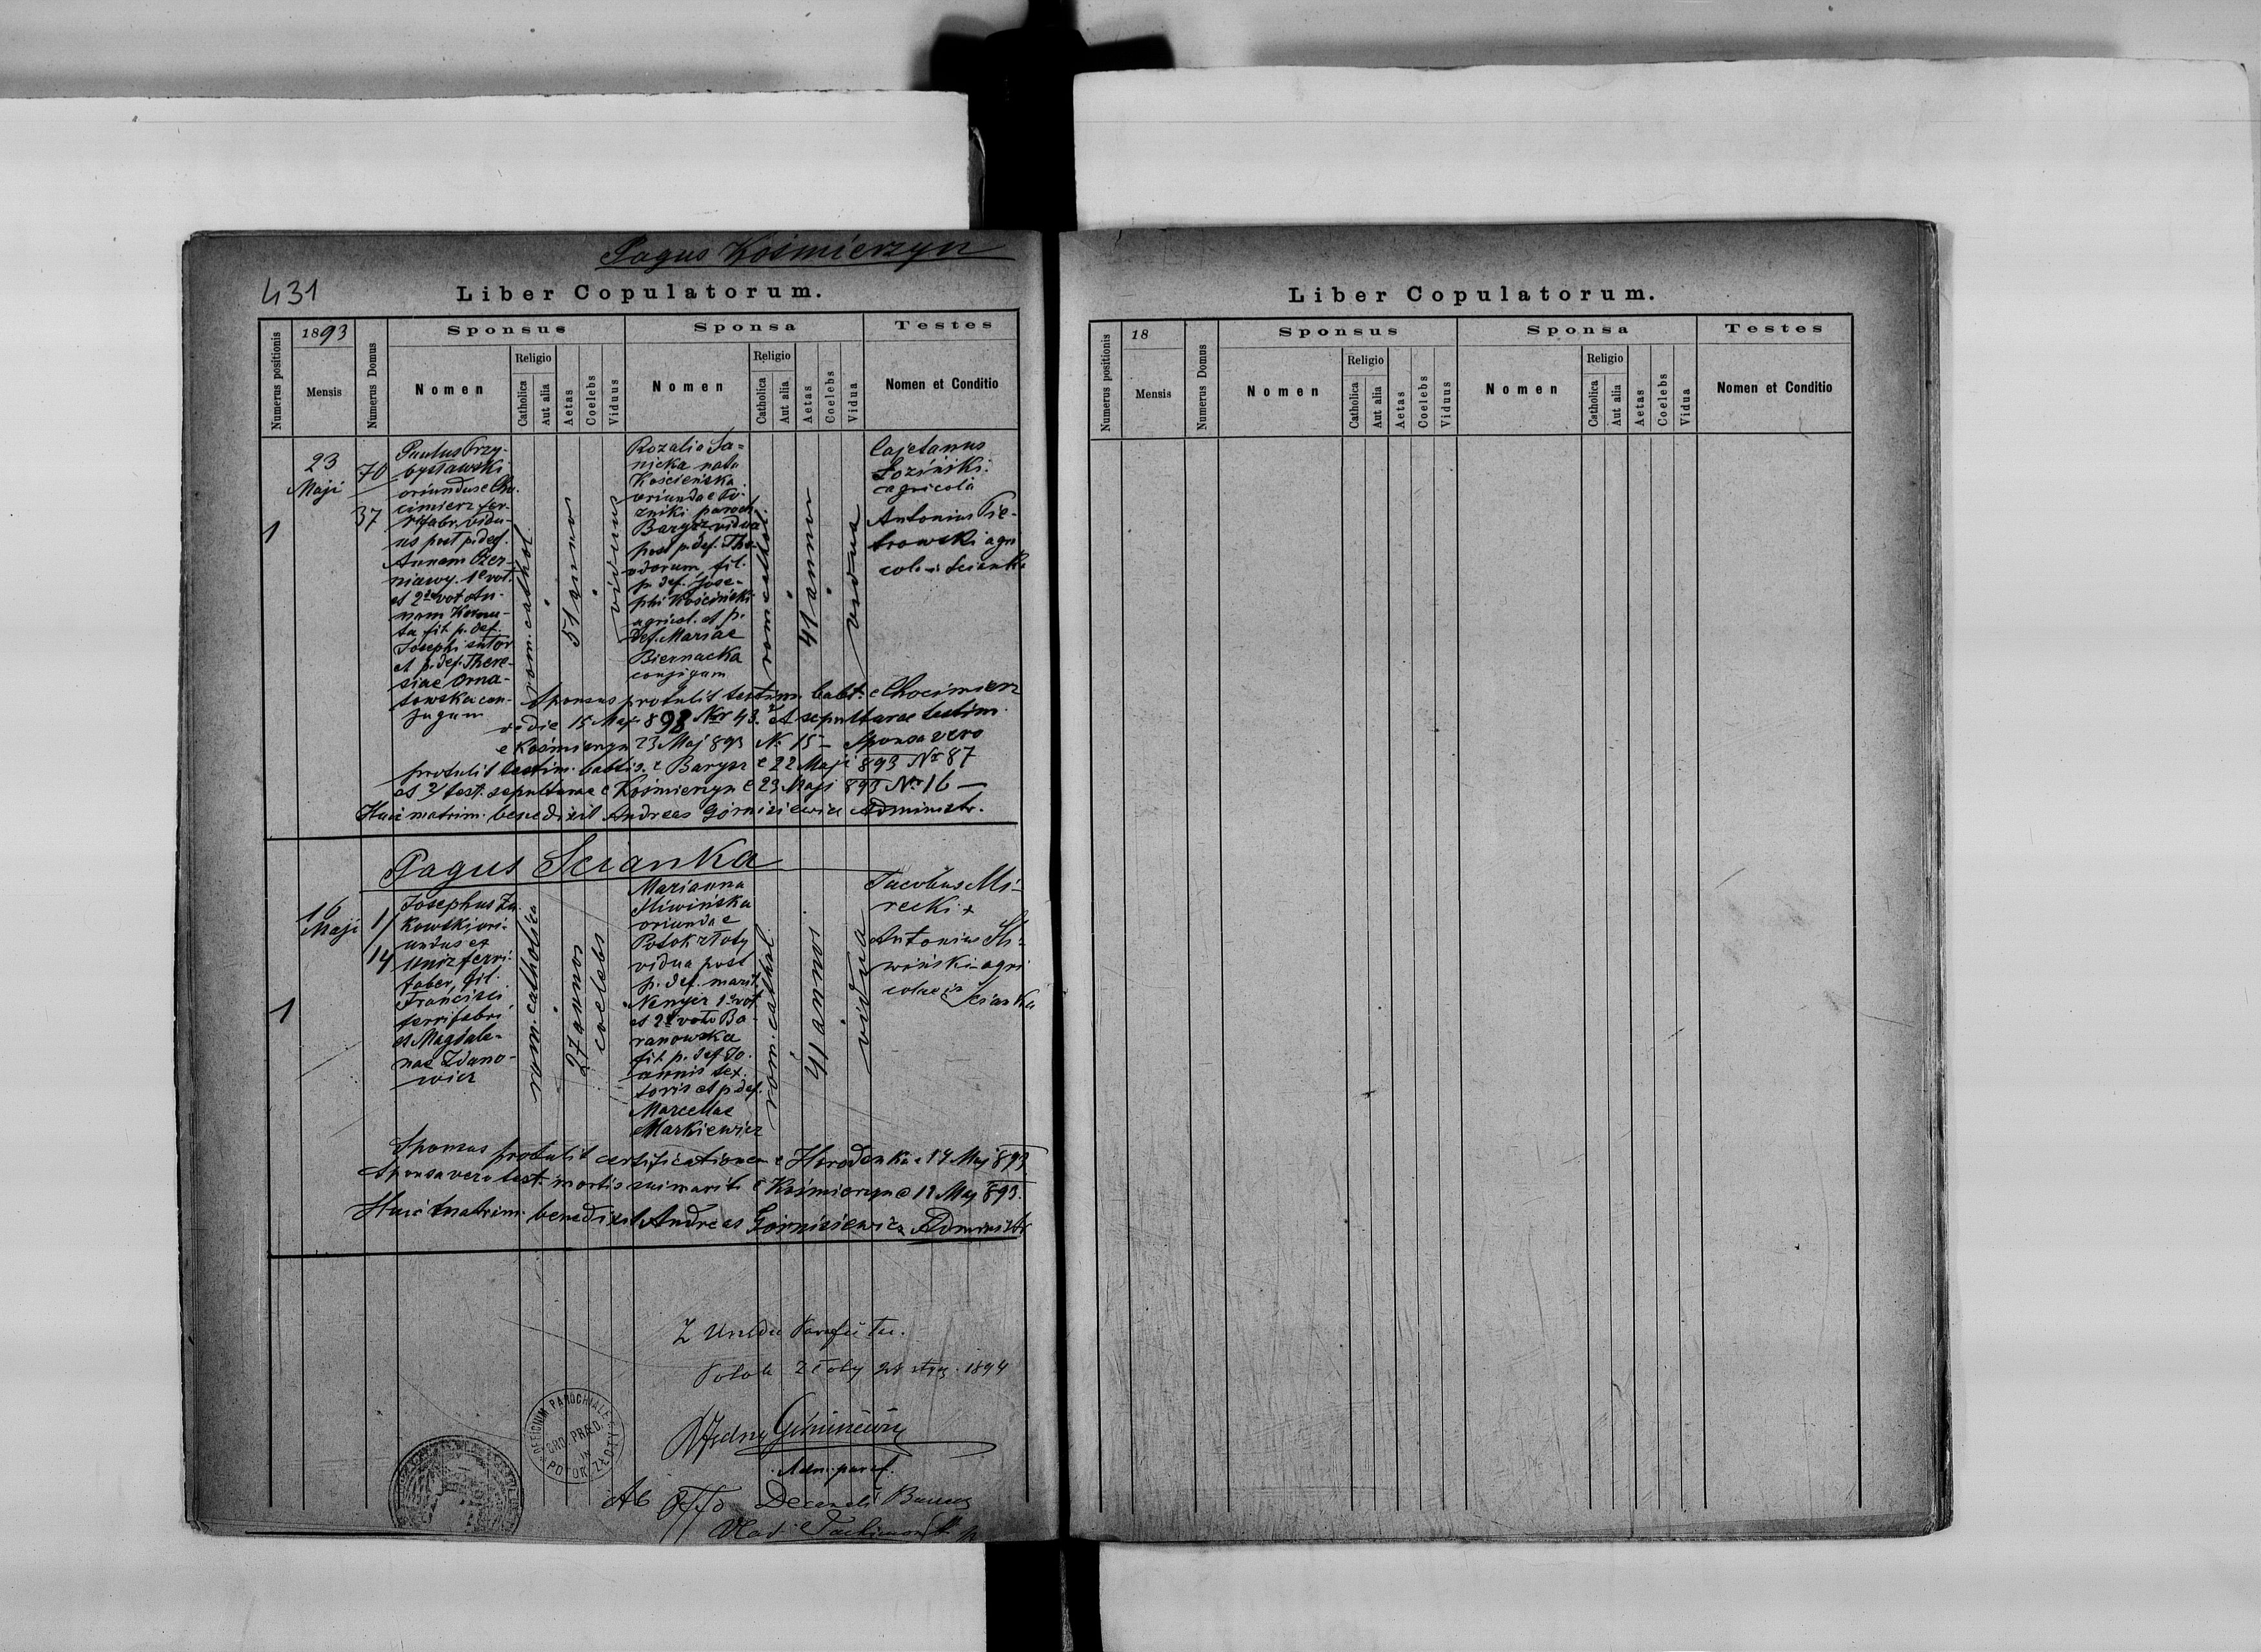 Pagus Kośmierzyn
431
Liber Copulatorum.
Numerus positionis
1893
Mensis
Numerus Domus
Sponsus
Nomen
Religio
Catholica
Aut alia
Aetas
Coelebs
Viduus
Sponsa
Nomen
Religio
Catholica
Aut alia
Aetas
Coelebs
Vidua
Testes
Nomen et Conditio
1
23
Maji
70
37
Paulus Przy-
bysławski
oriundus e Cho-
cimierz fer-
rifabr. vidu-
us post p. def.
Annam Czer-
niawy. 1º vot.
et 2do voto An-
nam
fil. p. def.
Josephi sutor
et p. def. There-
siae Orna-
towska con-
jugum
rom. cathol.
51 annos
viduus
Rozalia Sa-
nicka nata
Kościeńska
oriunda e
paroch.
Barysz vidua
post p. def. The-
odorum, fil.
p. def. Jose-
phi Kościński
agricol. et p.
def. Mariae
Biernacka
conjugum
rom. cathol.
41 annos
vidua
Cajetanus
Łoziński
agricola
Antonius Pie-
trowski agri
colae Scianka
Sponsus protulit testim. babt. e Chocimierz
de die 15 Maj 893 Nor 43. et sepulturae testim.
e Kośmierzyn 23 Maj 893 N. 15 — Sponsa vero
protulit testim. babtis. e Barysz e 22 Maji 893 Nr 87
et 2/ test. sepulturae e Kośmierzyn e 23 Maji 893 Nr 16 —
Huic matrim. benedixit Andreas Górnisiewicz Administr.
Pagus Scianka
1
16
Maji
1/
14
Josephus Żu-
kowski ori-
undus ex
Uniz ferri-
faber, fil.
Francisci
ferrifabri
et Magdale-
nae Zdano-
wicz
rom. catholica
27 annos
coelebs
Marianna
Śliwińska
oriunda e
Potok złoty
vidua post
p. def. marit.
Nenycz 1º vot
et 2do voto Ba-
ranowska
fil. p. def. Jo-
annis tex-
toris et p. def.
Marcellae
Markiewicz
rom. cathol.
41 annos
vidua
Jacobus Mi-
recki +
Antonius Śli-
wiński agri
colae in Scianka
Sponsus protulit certificationem e Horodenka e 14 Maj 893.
Sponsa vero test. mortis sui mariti e Kośmierzyn e 12 Maj 893.
Huic matrim. benedixit Andreas Górnisiewicz Administr
Z Urzędu Parafii tu.
Potok Złoty 24 stycz. 1894
XJędrzej Górnisiewicz
Adm. paraf.
OFFICIUM PAROCHIALE
IN
POTOK ZŁOTY
Ab Offo Decanali
Vlad.
Liber Copulatorum.
Numerus positionis
18
Mensis
Numerus Domus
Sponsus
Nomen
Religio
Catholica
Aut alia
Aetas
Coelebs
Viduus
Sponsa
Nomen
Religio
Catholica
Aut alia
Aetas
Coelebs
Vidua
Testes
Nomen et Conditio